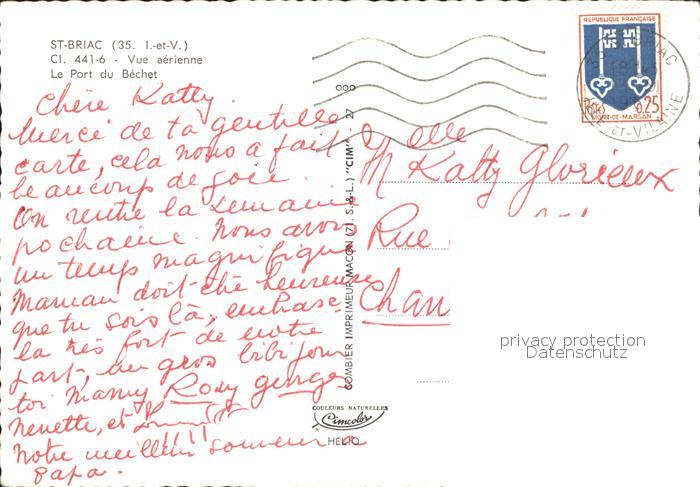 ST-BRIAC (35. I.-et-V.)
Cl. 441-6 - Vue aérienne
Le Port du Béchet
Chère Katty.
Merci de ta gentille
carte, cela nous a fait
beaucoup de joie.
On rentre la semaine
pochaine. Nous avons
un temps magnifique
Maman doit-être heureuse
que tu sois là, embrasse
la très fort de notre
part, un gros bibi pour
toi Mamy Rosy
Nenette, et
notre meilleur souvenir a
papa.
COMBIER IMPRIMEUR MACON (71. S.-&-L.) "CIM"
27
COULEURS NATURELLES
Cimcolor
HELIO
REPUBLIQUE FRANÇAISE
Postes
0,25
MONT-DE-MARSAN
BRIAC
ET-VILAINE
Melle Katty Glorieux
Rue
Chan
privacy protection
Datenschutz